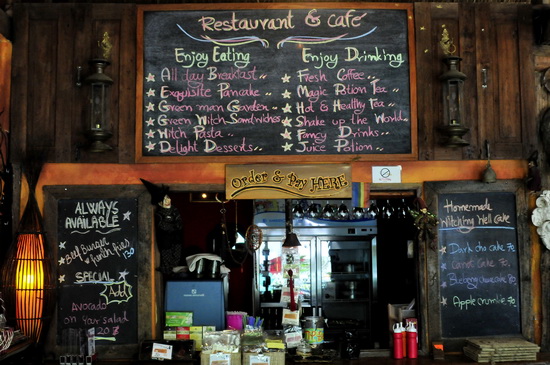 Restaurant & café
Enjoy Eating
All day Breakfast..
Exquisite Pancake..
Green man Garden..
Green Witch Sandwiches
Witch Pasta..
Delight Desserts..
Enjoy Drinking
Fresh Coffee..
Magic Potion Tea..
Hot & Healthy Tea..
Shake up the World..
Fancy Drinks..
Juice Potion..
Order & Pay HERE
ALWAYS
AVAILABLE
Beef Burger
french fries
SPECIAL
Add
Avocado
on your Salad
Homemade
Witching Well Cake
Dark choc cake
Carrot Cake
Applecrumble